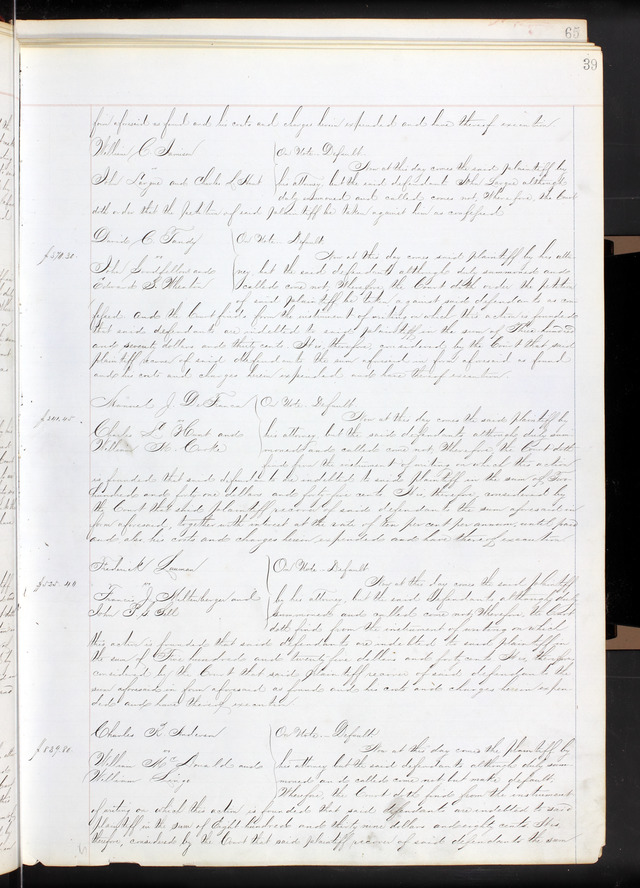 65
39
form aforesaid as found and his costs and charges herein expended and have thereof execution
William C
On Note Default
vs
Now at this day comes the said plaintiff by
John and Charles L Hunt
his attorney but the said defendant John although
duly summoned and called comes not, Wherefore, the Court
doth order that the petition of said plaintiff be taken against him as confessed
David C Tandy
On Note Default
$370.30
vs
Now at this day comes said plaintiff by his attor-
John and
ney but the said defendants although duly summoned and
Edward
called come not, Wherefore the Court doth order the petition
of said plaintiff be taken against said defendants as con-
fessed and the Court finds from the instrument of writing on which this action is founded
that said defendants are indebted to said plaintiff in the sum of Three hundred
and seventy dollars and thirty cents It is, therefore, considered by the Court that said
plaintiff recover of said defendants the sum aforesaid in form aforesaid as found
and his costs and charges herein expended and have thereof execution.
Samuel J
On Note Default
vs
Now at this day comes the said plaintiff by
Charles L Hunt and
his attorney but the said defendants although duly sum-
William M. Cooke
moned and called come not, Wherefore, the Court doth
find from the instrument of writing on which this action
is founded that said defendants are indebted to said plaintiff in the sum of
hundred and forty one dollars and forty five cents It is, therefore, considered by
the Court that said plaintiff recover of said defendants the sum aforesaid in
form aforesaid, together with interest at the rate of Ten per cent per annum, until paid
and also his costs and charges herein expended and have thereof execution
Frederick
On Note Default
$525.40
vs
Now at this day comes the said plaintiff
Francis J and
by his attorney, but the said Defendants although duly
John
summoned and called come not, Wherefore, the Court
doth find from the instrument of writing on which
this action is founded that said Defendants are indebted to said plaintiff in
the sum of Five hundred and twenty five dollars and forty cents It is, therefore,
considered by the Court that said plaintiff recover of said defendants the
sum aforesaid in form aforesaid as found and his costs and charges herein expen-
ded and have thereof execution
Charles
On Note Default
$839.80
vs
Now at this day comes the plaintiff by
William McDonald and
his attorney but the said defendants although duly sum-
William
moned and called come not but make default.
Wherefore, the Court doth find from the instrument
of writing on which the action is founded that said defendants are indebted to said
plaintiff in the sum of Eight hundred and thirty nine dollars and eighty cents It is
therefore, considered by the Court that said plaintiff recover of said defendants the sum